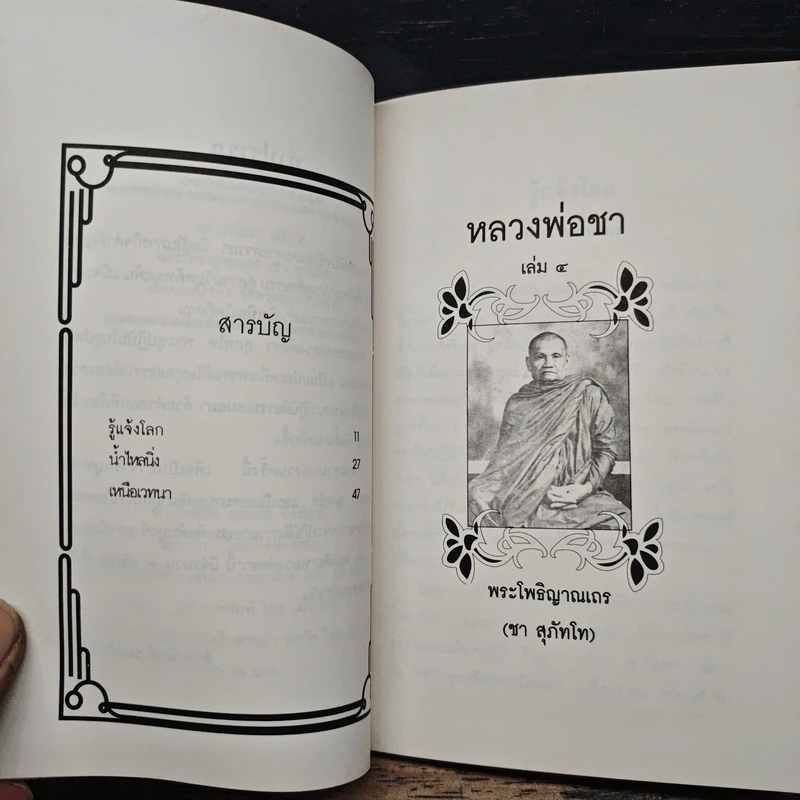 สารบัญ
รู้แจ้งโลก 11
น้ำไหลนิ่ง 27
เหนือเวทนา 47
หลวงพ่อชา
เล่ม ๔
พระโพธิญาณเถร
(ชา สุภัทโท)